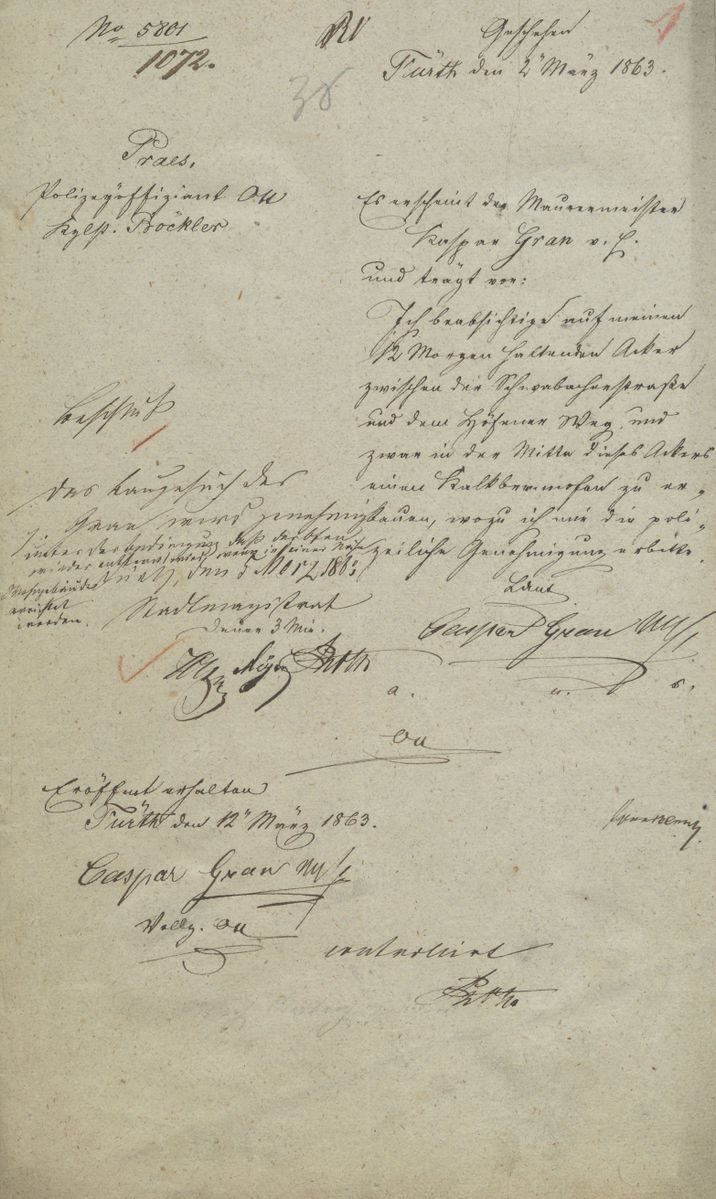 No 5801
1072.
Geschehen
Fürth den 2" März 1863.
38
Praes.
Polizeyoffiziant Ott
Böckler
Es erscheint der Maurermeister
Kaspar Gran v. h.
und trägt vor:
Ich beabsichtige auf meinen
12 Morgen haltenden Acker
zwischen der Schwabacherstraße
und dem Höfener Weg, und
zwar in der Mitte dieses Ackers
einen Kalkbrennofen zu er-
bauen, wozu ich mir die poli-
zeiliche Genehmigung erbitte.
Caspar Gran
a. u. s.
Ott
Beschluß
Das Baugesuch des
Gran wird genehmigt
unter der Bedingung daß der Ofen
wieder entfernt wird, wenn in seiner Nähe
Wohngebäude
errichtet
werden.
Fürth, den 5 März 1863
Stadtmagistrat
Eröffnet erhalten
Fürth den 12" März 1863.
Caspar Gran
Ott